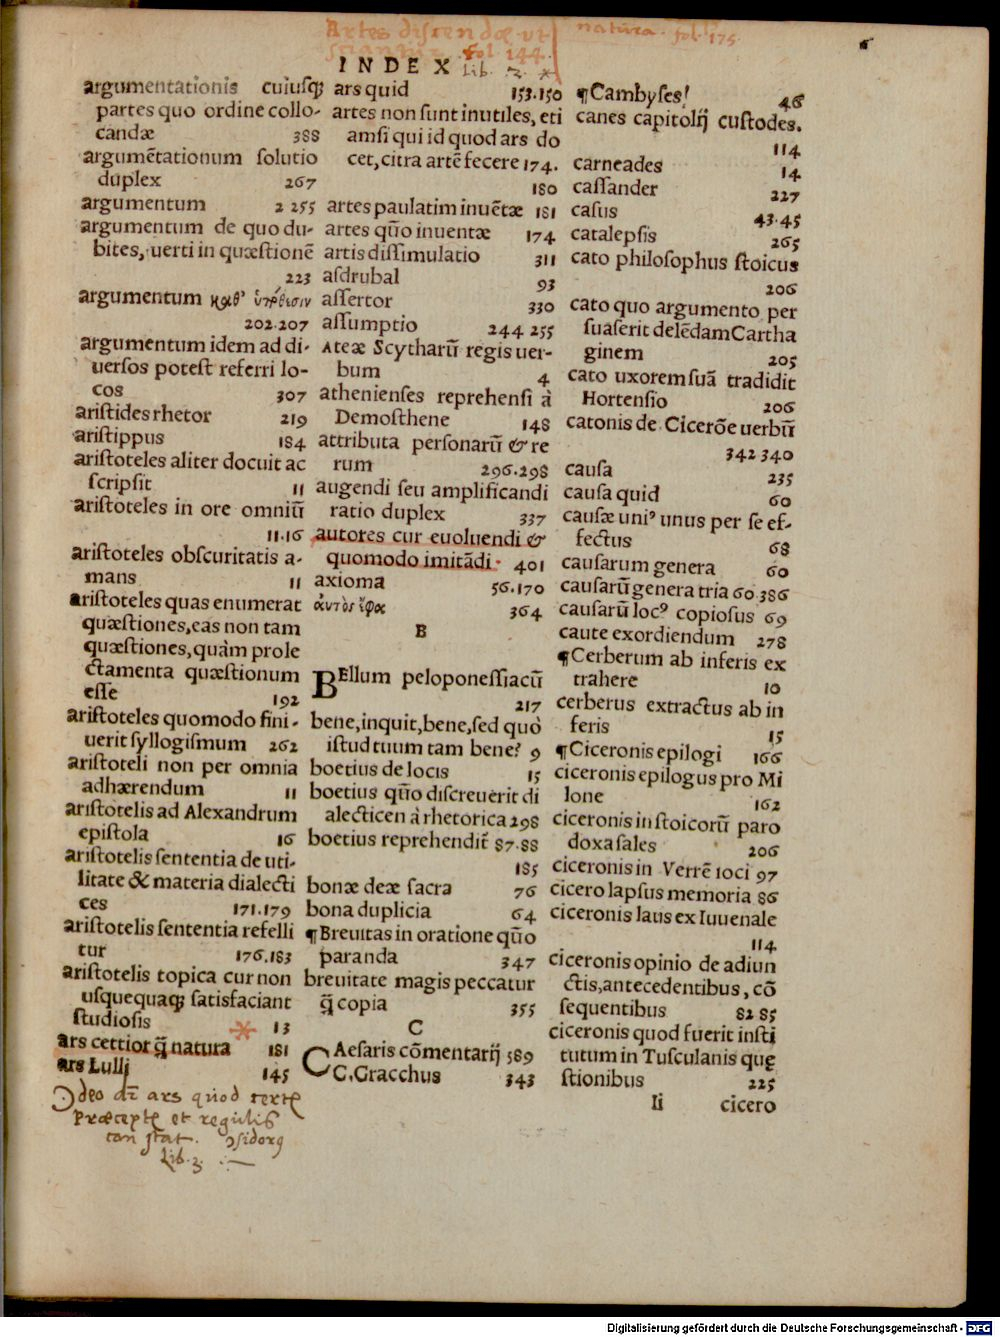 Artes discendæ ut
sciantur. fol 144.
natura. fol. 175.
INDEX
Lib. 3.
argumentationis cuiusq;
partes quo ordine collo-
candæ 388
argumẽtationum solutio
duplex 267
argumentum 2 255
argumentum de quo du-
bites, uerti in quæstionẽ
223
argumentum καθ’ ὑπόθεσιν
202.207
argumentum idem ad di-
uersos potest referri lo-
cos 307
aristides rhetor 219
aristippus 184
aristoteles aliter docuit ac
scripsit 11
aristoteles in ore omniũ
11.16
aristoteles obscuritatis a-
mans 11
aristoteles quas enumerat
quæstiones, eas non tam
quæstiones, quàm prole
ctamenta quæstionum
esse 192
aristoteles quomodo fini-
uerit syllogismum 262
aristoteli non per omnia
adhærendum 11
aristotelis ad Alexandrum
epistola 16
aristotelis sententia de uti-
litate & materia dialecti
ces 171.179
aristotelis sententia refelli
tur 176.183
aristotelis topica cur non
usquequaq; satisfaciant
studiosis 13
ars certior q̃ natura 181
ars Lulli 145
Ideo dr̃ ars quod certis
præceptis et regulis
constat. Isidorꝰ
Lib. 3.
ars quid 153.150
artes non sunt inutiles, eti
amsi qui id quod ars do
cet, citra artẽ fecere 174.
180
artes paulatim inuẽtæ 181
artes quõ inuentæ 174
artis dissimulatio 311
asdrubal 93
assertor 330
assumptio 244 255
Ateæ Scytharũ regis uer-
bum 4
athenienses reprehensi à
Demosthene 148
attributa personarũ & re
rum 296.298
augendi seu amplificandi
ratio duplex 337
autores cur euoluendi &
quomodo imitãdi 401
axioma 56.170
αὐτὸς ἔφα 364
B
BEllum peloponessiacũ
217
bene, inquit, bene, sed quò
istud tuum tam bene? 9
boetius de locis 15
boetius quõ discreuerit di
alecticen à rhetorica 298
boetius reprehendit̃ 87.88
185
bonæ deæ sacra 76
bona duplicia 64
¶Breuitas in oratione quõ
paranda 347
breuitate magis peccatur
q̃ copia 355
C
CAesaris cõmentarij 389
C. Gracchus 343
¶Cambyses! 46
canes capitolij custodes.
114
carneades 14
cassander 227
casus 43.45
catalepsis 265
cato philosophus stoicus
206
cato quo argumento per
suaserit delẽdam Cartha
ginem 205
cato uxorem suã tradidit
Hortensio 206
catonis de Cicerõe uerbũ
342 340
causa 235
causa quid 60
causæ uniꝰ unus per se ef-
fectus 68
causarum genera 60
causarũ genera tria 60.386
causarũ locꝰ copiosus 69
caute exordiendum 278
¶Cerberum ab inferis ex
trahere 10
cerberus extractus ab in
feris 15
¶Ciceronis epilogi 166
ciceronis epilogus pro Mi
lone 162
ciceronis in stoicorũ paro
doxa sales 206
ciceronis in Verrẽ ioci 97
cicero lapsus memoria 86
ciceronis laus ex Iuuenale
114
ciceronis opinio de adiun
ctis, antecedentibus, cõ
sequentibus 82 85
ciceronis quod fuerit insti
tutum in Tusculanis quę
stionibus 225
Ii cicero
Digitalisierung gefördert durch die Deutsche Forschungsgemeinschaft - DFG